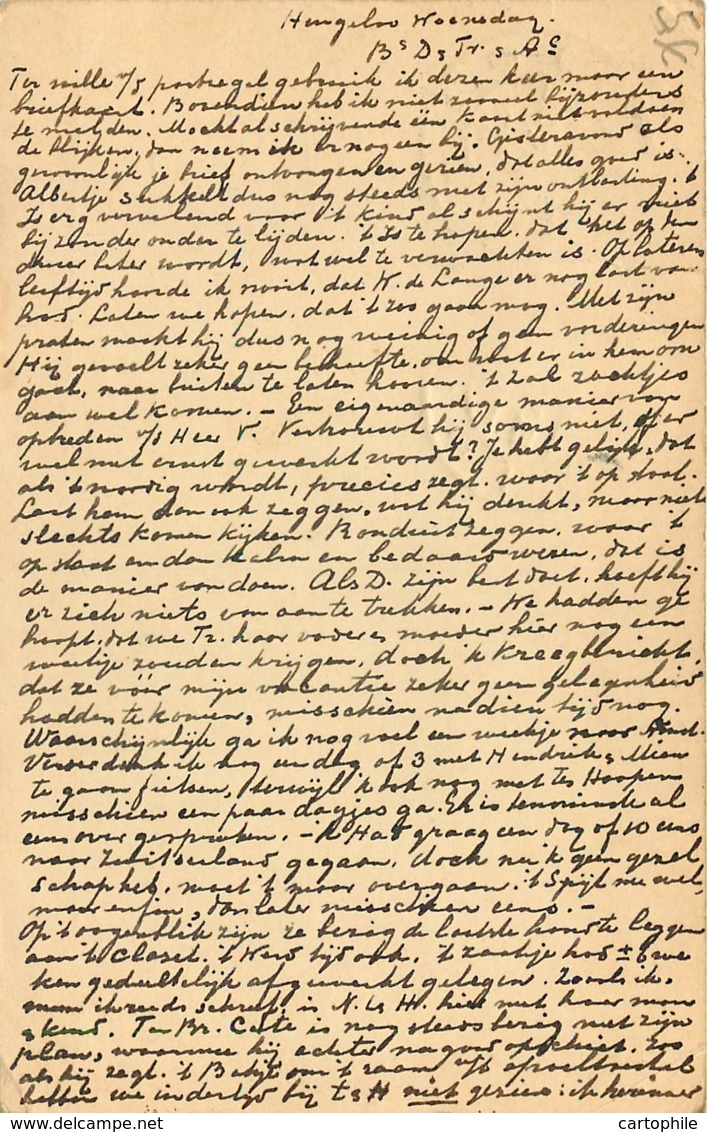 58
Hengeloo Woensdag.
Bs D, Tr. & A
Ter wille v/d postzegel gebruik ik dezen keer maar een
briefkaart. Bovendien heb ik niet zooveel bijzonders
te melden. Mocht al schrijvende één kaart niet voldoen
de blijken, dan neem ik er nog een bij. Gisteravond als
gewoonlijk je brief ontvangen en gezien, dat alles goed is.
Albertje sukkelt dus nog steeds met zijn ontlasting. 't
Is erg vervelend voor 't kind al schijnt hij er niet
bijzonder onder te lijden. 't Is te hopen, dat het op den
duur beter wordt, wat wel te verwachten is. Op lateren
leeftijd hoorde ik nooit, dat W. de Lange er nog last van
had. Laten we hopen, dat 't zoo gaan mag. Met zijn
praten maakt hij dus nog weinig of geen vorderingen
Hij gevoelt zeker geen behoefte, om wat er in hem om
gaat, naar buiten te laten komen. 't Zal zachtjes
aan wel komen. – Een eigenaardige manier van
optreden v/d Heer V. Vertrouwt hij soms niet, of er
wel met ernst gewerkt wordt? Je hebt gelijk, dat
als 't noodig wordt, precies zegt, waar 't op staat.
Laat hem dan ook zeggen, wat hij denkt, maar niet
slechts komen kijken. Ronduit zeggen, waar 't
op staat en dan kalm en bedaard wezen, dat is
de manier van doen. Als D. zijn best doet, hoeft hij
er zich niets van aan te trekken. – We hadden ge
hoopt, dat we Tr. haar vader & moeder hier nog een
weekje zouden krijgen, doch 'k kreeg bericht,
dat ze vóór mijn vacantie zeker geen gelegenheid
hadden te komen, misschien nadien tijd nog.
Waarschijnlijk ga ik nog wel een weekje naar Amst.
Verder denk ik nog een dag of 3 met Hendrik & Mien
te gaan fietsen, terwijl 'k ook nog met ten Hoopen
misschien een paar dagjes ga. Er is tenminste al
eens over gesproken. – 'k Had graag een dag of 10 eens
naar Zwitserland gegaan, doch nu 'k geen gezel
schap heb, moet 't maar overgaan. 't Spijt me wel,
maar enfin, dan later misschien eens. –
Op 't oogenblik zijn ze bezig de laatste hand te leggen
aan 't closet. 't Werd tijd ook, 't zaakje had ± 6 we
ken gedeeltelijk afgewerkt gelegen. Zooals ik,
meen ik reeds schreef, is N. ts Hr. hier met haar man
& kind. Ten Br. Cate is nog steeds bezig met zijn
plan, waarmee hij achter na goed opschiet, zoo
als hij zegt. 't Bekijk
hebben we indertijd bij ts H niet gezien: ik herinner
cartophile